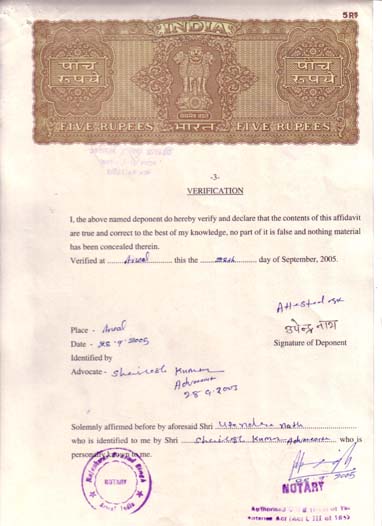 5 RS
INDIA
पांच
रुपये
पांच
रुपये
FIVE RUPEES भारत FIVE RUPEES
-3-
VERIFICATION
I, the above named deponent do hereby verify and declare that the contents of this affidavit
are true and correct to the best of my knowledge, no part of it is false and nothing material
has been concealed therein.
Verified at ........ Arwal ........ this the ........ day of September, 2005.
Attested
उपेन्द्र नाथ
Place - Arwal
Date - 28-9-2005
Signature of Deponent
Identified by
Advocate - Shailesh Kumar
Advocate
28.9.2005
Solemnly affirmed before by aforesaid Shri Upendra Nath
who is identified to me by Shri ..... Shailesh Kumar Advocate who is
personally known to me.
2005
NOTARY
Arwal India
NOTARY